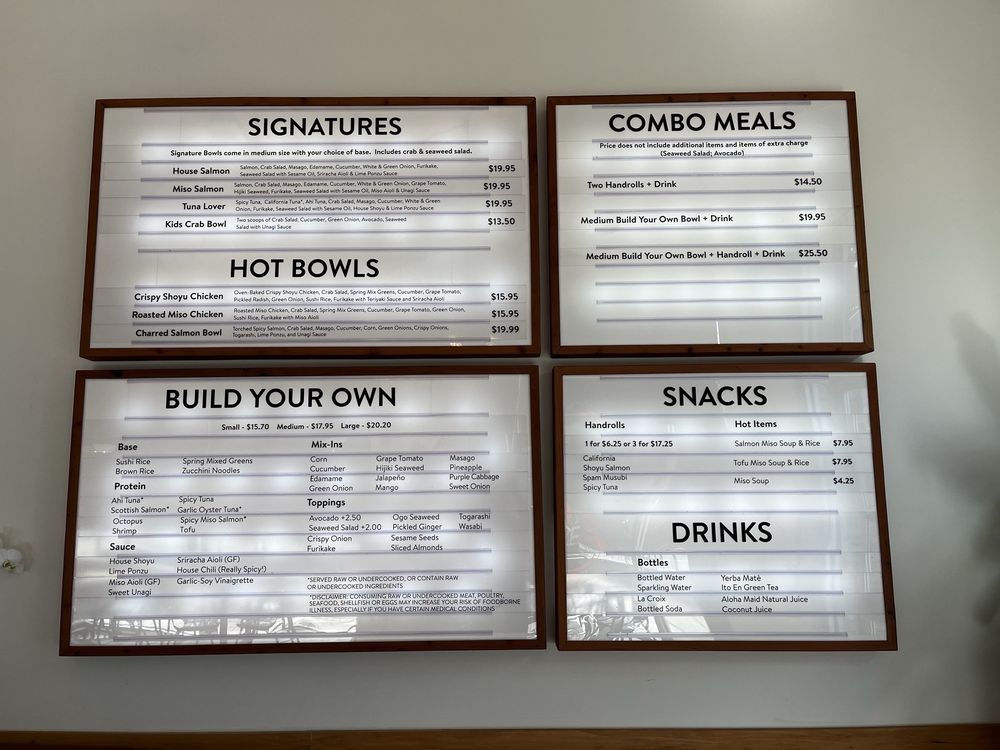 SIGNATURES
Signature Bowls come in medium size with your choice of base. Includes crab & seaweed salad.
House Salmon Salmon, Crab Salad, Masago, Edamame, Cucumber, White & Green Onion, Furikake, $19.95
Seaweed Salad with Sesame Oil, Sriracha Aioli & Lime Ponzu Sauce
Miso Salmon Salmon, Crab Salad, Masago, Edamame, Cucumber, White & Green Onion, Grape Tomato, $19.95
Hijiki Seaweed, Furikake, Seaweed Salad with Sesame Oil, Miso Aioli & Unagi Sauce
Tuna Lover Spicy Tuna, California Tuna*, Ahi Tuna, Crab Salad, Masago, Cucumber, White & Green $19.95
Onion, Furikake, Seaweed Salad with Sesame Oil, House Shoyu & Lime Ponzu Sauce
Kids Crab Bowl Two scoops of Crab Salad, Cucumber, Green Onion, Avocado, Seaweed $13.50
Salad with Unagi Sauce
HOT BOWLS
Crispy Shoyu Chicken Oven-Baked Crispy Shoyu Chicken, Crab Salad, Spring Mix Greens, Cucumber, Grape Tomato, $15.95
Pickled Radish, Green Onion, Sushi Rice, Furikake with Teriyaki Sauce and Sriracha Aioli
Roasted Miso Chicken Roasted Miso Chicken, Crab Salad, Spring Mix Greens, Cucumber, Grape Tomato, Green Onion, $15.95
Sushi Rice, Furikake with Miso Aioli
Charred Salmon Bowl Torched Spicy Salmon, Crab Salad, Masago, Cucumber, Corn, Green Onions, Crispy Onions, $19.99
Togarashi, Lime Ponzu, and Unagi Sauce
COMBO MEALS
Price does not include additional items and items of extra charge
(Seaweed Salad; Avocado)
Two Handrolls + Drink $14.50
Medium Build Your Own Bowl + Drink $19.95
Medium Build Your Own Bowl + Handroll + Drink $25.50
BUILD YOUR OWN
Small - $15.70 Medium - $17.95 Large - $20.20
Base
Sushi Rice Spring Mixed Greens
Brown Rice Zucchini Noodles
Protein
Ahi Tuna* Spicy Tuna
Scottish Salmon* Garlic Oyster Tuna*
Octopus Spicy Miso Salmon*
Shrimp Tofu
Sauce
House Shoyu Sriracha Aioli (GF)
Lime Ponzu House Chili (Really Spicy!)
Miso Aioli (GF) Garlic-Soy Vinaigrette
Sweet Unagi
Mix-Ins
Corn Grape Tomato Masago
Cucumber Hijiki Seaweed Pineapple
Edamame Jalapeño Purple Cabbage
Green Onion Mango Sweet Onion
Toppings
Avocado +2.50 Ogo Seaweed Togarashi
Seaweed Salad +2.00 Pickled Ginger Wasabi
Crispy Onion Sesame Seeds
Furikake Sliced Almonds
*SERVED RAW OR UNDERCOOKED, OR CONTAIN RAW
OR UNDERCOOKED INGREDIENTS
*DISCLAIMER: CONSUMING RAW OR UNDERCOOKED MEAT, POULTRY,
SEAFOOD, SHELLFISH OR EGGS MAY INCREASE YOUR RISK OF FOODBORNE
ILLNESS, ESPECIALLY IF YOU HAVE CERTAIN MEDICAL CONDITIONS
SNACKS
Handrolls
1 for $6.25 or 3 for $17.25
California
Shoyu Salmon
Spam Musubi
Spicy Tuna
Hot Items
Salmon Miso Soup & Rice $7.95
Tofu Miso Soup & Rice $7.95
Miso Soup $4.25
DRINKS
Bottles
Bottled Water Yerba Maté
Sparkling Water Ito En Green Tea
La Croix Aloha Maid Natural Juice
Bottled Soda Coconut Juice